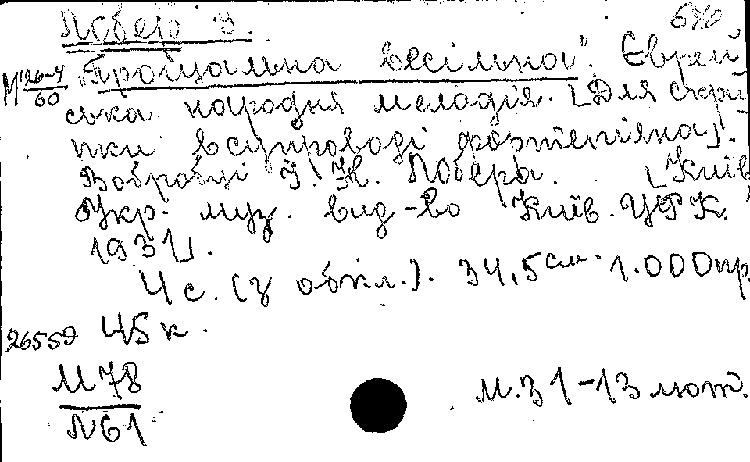 Лобер В. 540
М 126-4/60 "Прощальна весільна". Єврей-
ська народня мелодія. [Для скри-
пки в супроводі фортепіяна].
В обробці Лобера. [Київ]
Укр. муз. вид-во Київ. УРК.
1931].
4 с. (з обкл.). 34,5 см. 1.000 пр.
26559 45 к.
М78
N61
М.31-13 лют.